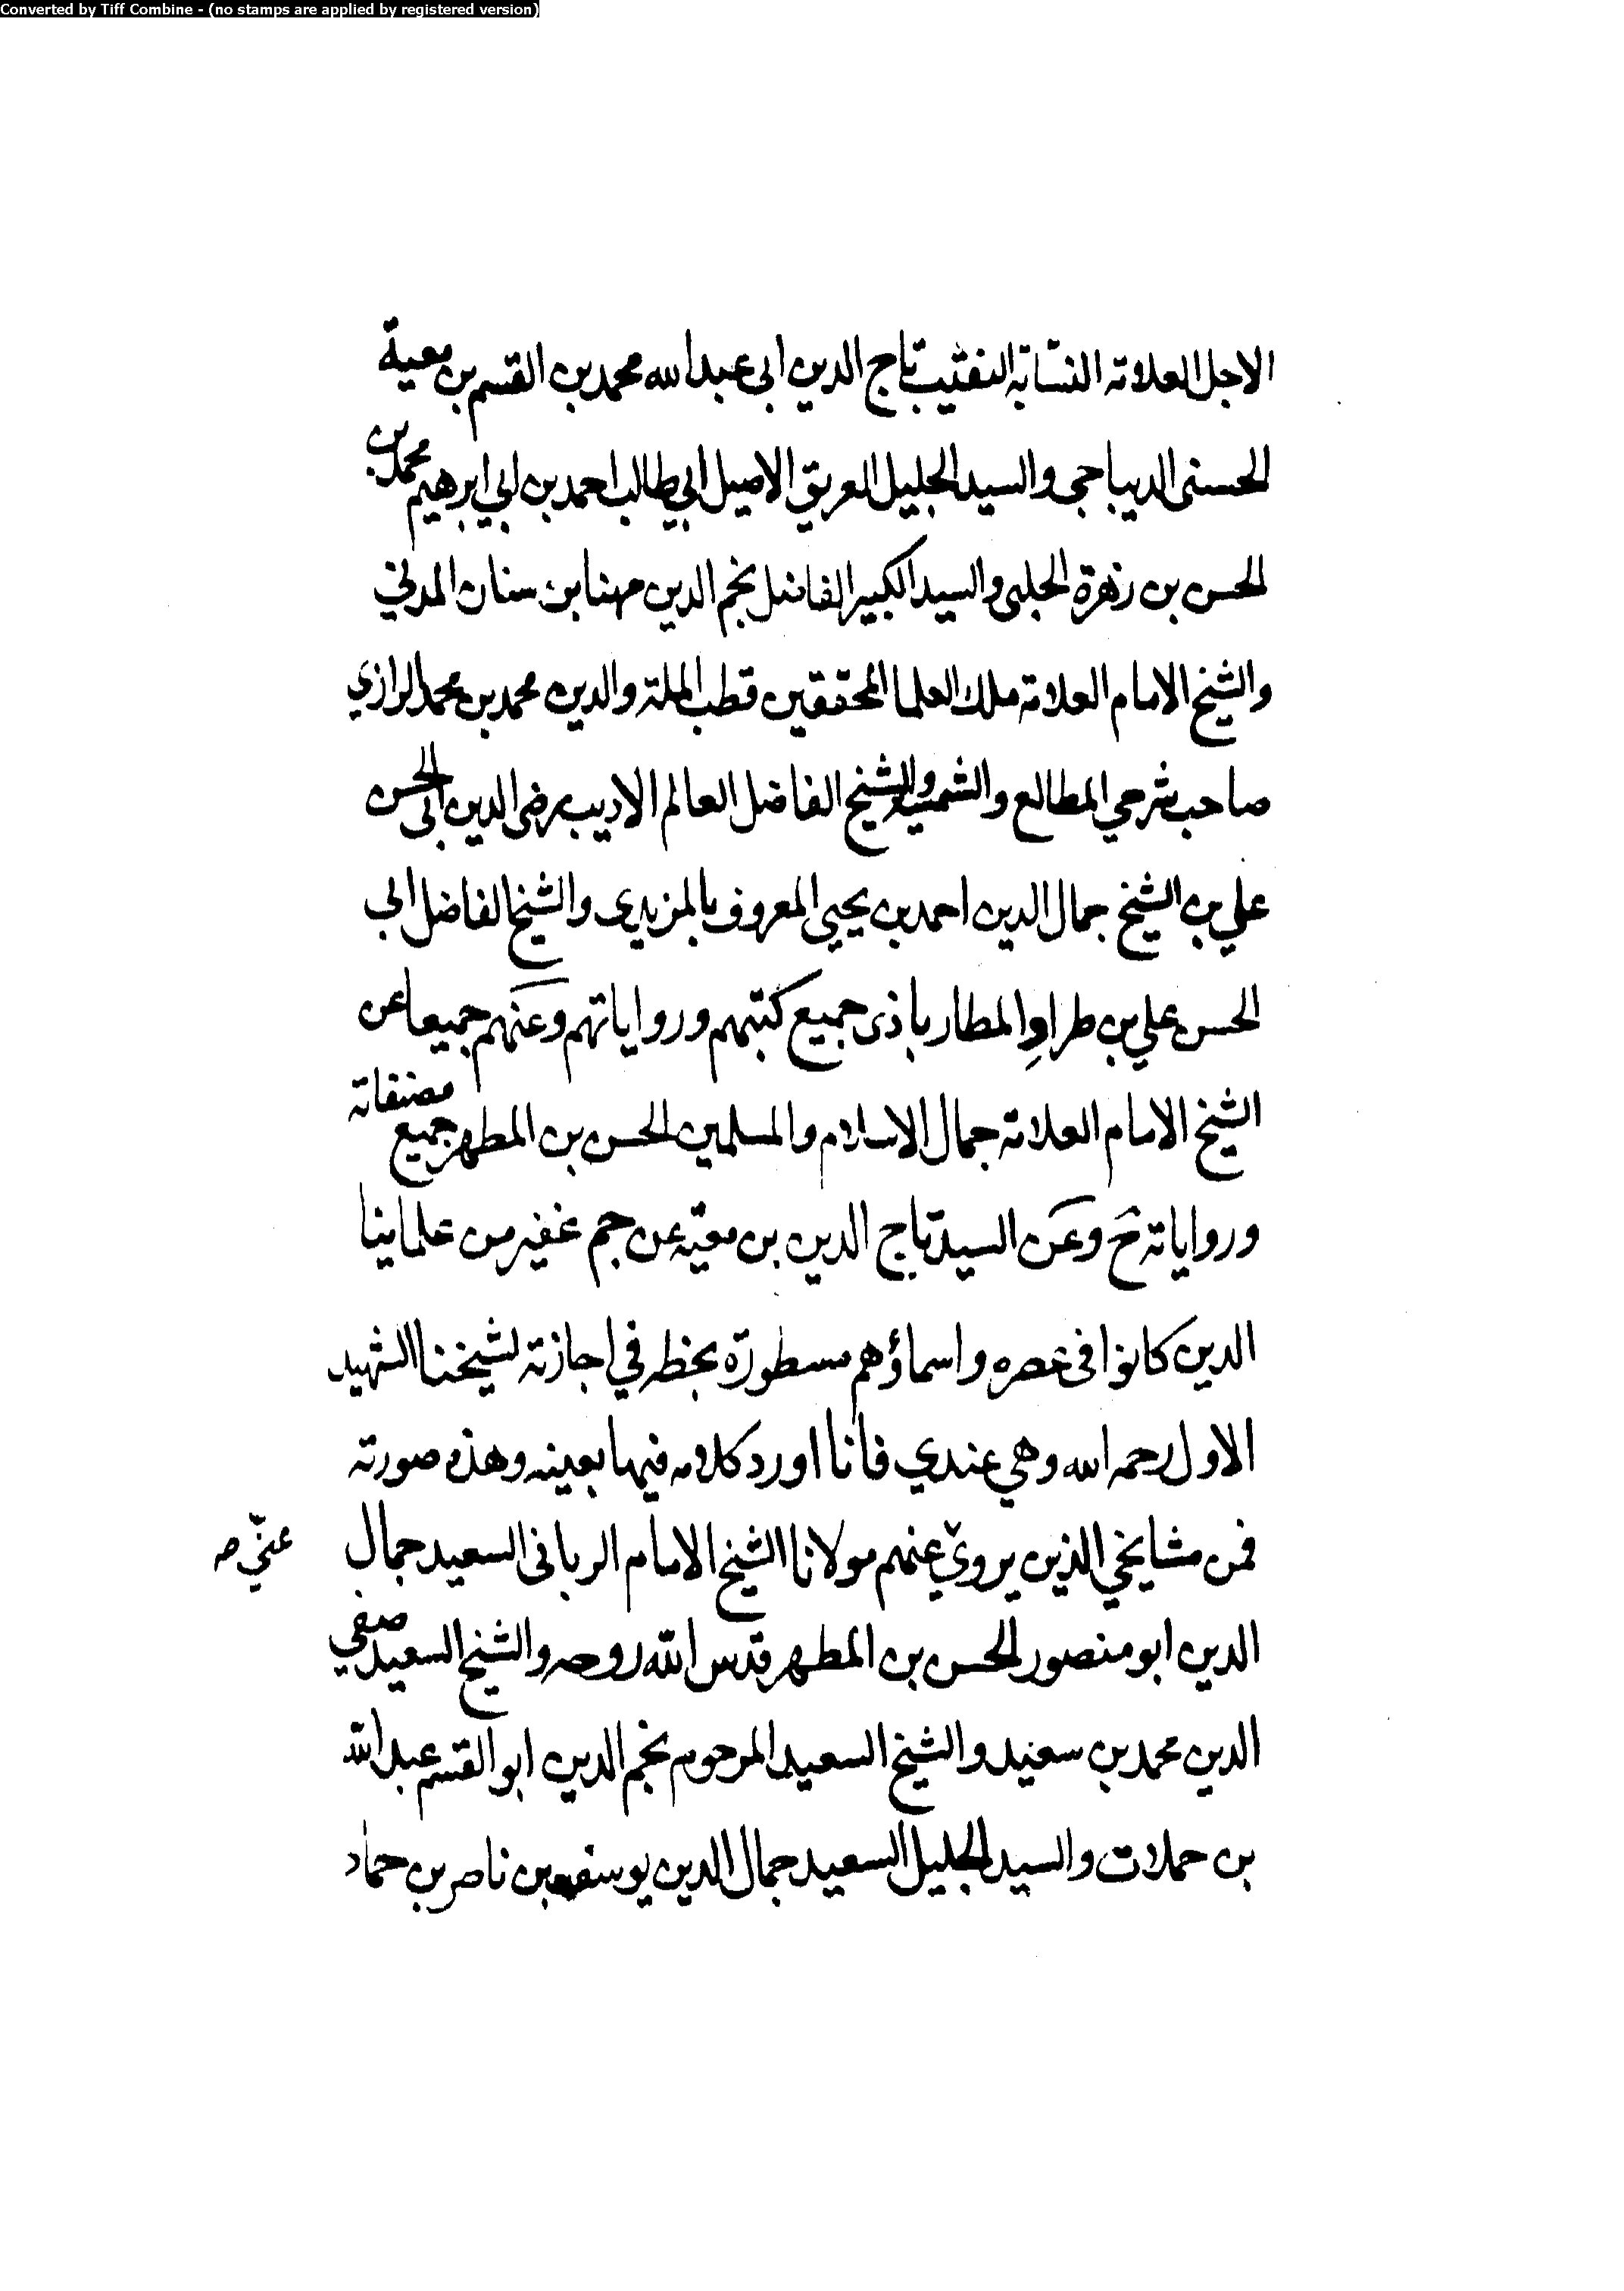 Converted by Tiff Combine - (no stamps are applied by registered version)
الاجل العلامة النسّابة النقيب تاج الدين ابى عبد الله محمد بن القسم بن معية
الحسنى الديباجى والسيد الجليل العريق الاصيل ابي طالب احمد بن ابي ابرهيم محمد بن
الحسن بن زهرة الحلبى والسيد الكبير الفاضل نجم الدين مهنا بن سنان المدني
والشيخ الامام العلامة ملك العلما المحققين قطب الملة والدين محمد بن محمد الرازي
صاحب شرحي المطالع والشمسية والشيخ الفاضل العالم الاديب رضى الدين ابى الحسن
علي بن الشيخ جمال الدين احمد بن يحيى المعروف بالمزيدى والشيخ الفاضل ابى
الحسن علي بن طراد المطارباذى جميع كتبهم ورواياتهم وعنهم جميعا عن
الشيخ الامام العلامة جمال الاسلام والمسلمين الحسن بن المطهر جميع مصنفاته
ورواياته ح وعن السيد تاج الدين بن معيّة عن جم غفير من علماينا
الدين كانوا فى عصره واسماؤهم مسطورة بخطه في اجازته لشيخنا الشهيد
الاول رحمه الله وهي عندي فانا اورد كلامه فيها بعينه وهذه صورته
فمن مشايخي الذين يروي عنهم مولانا الشيخ الامام الربانى السعيد جمال
عنّي صه
الدين ابو منصور الحسن بن المطهر قدس اللّه روحه والشيخ السعيد صفي
الدين محمد بن سعيد والشيخ السعيد المرحوم نجم الدين ابو القسم عبد اللّه
بن حملات والسيد الجليل السعيد جمال الدين يوسف بن ناصر بن حماد